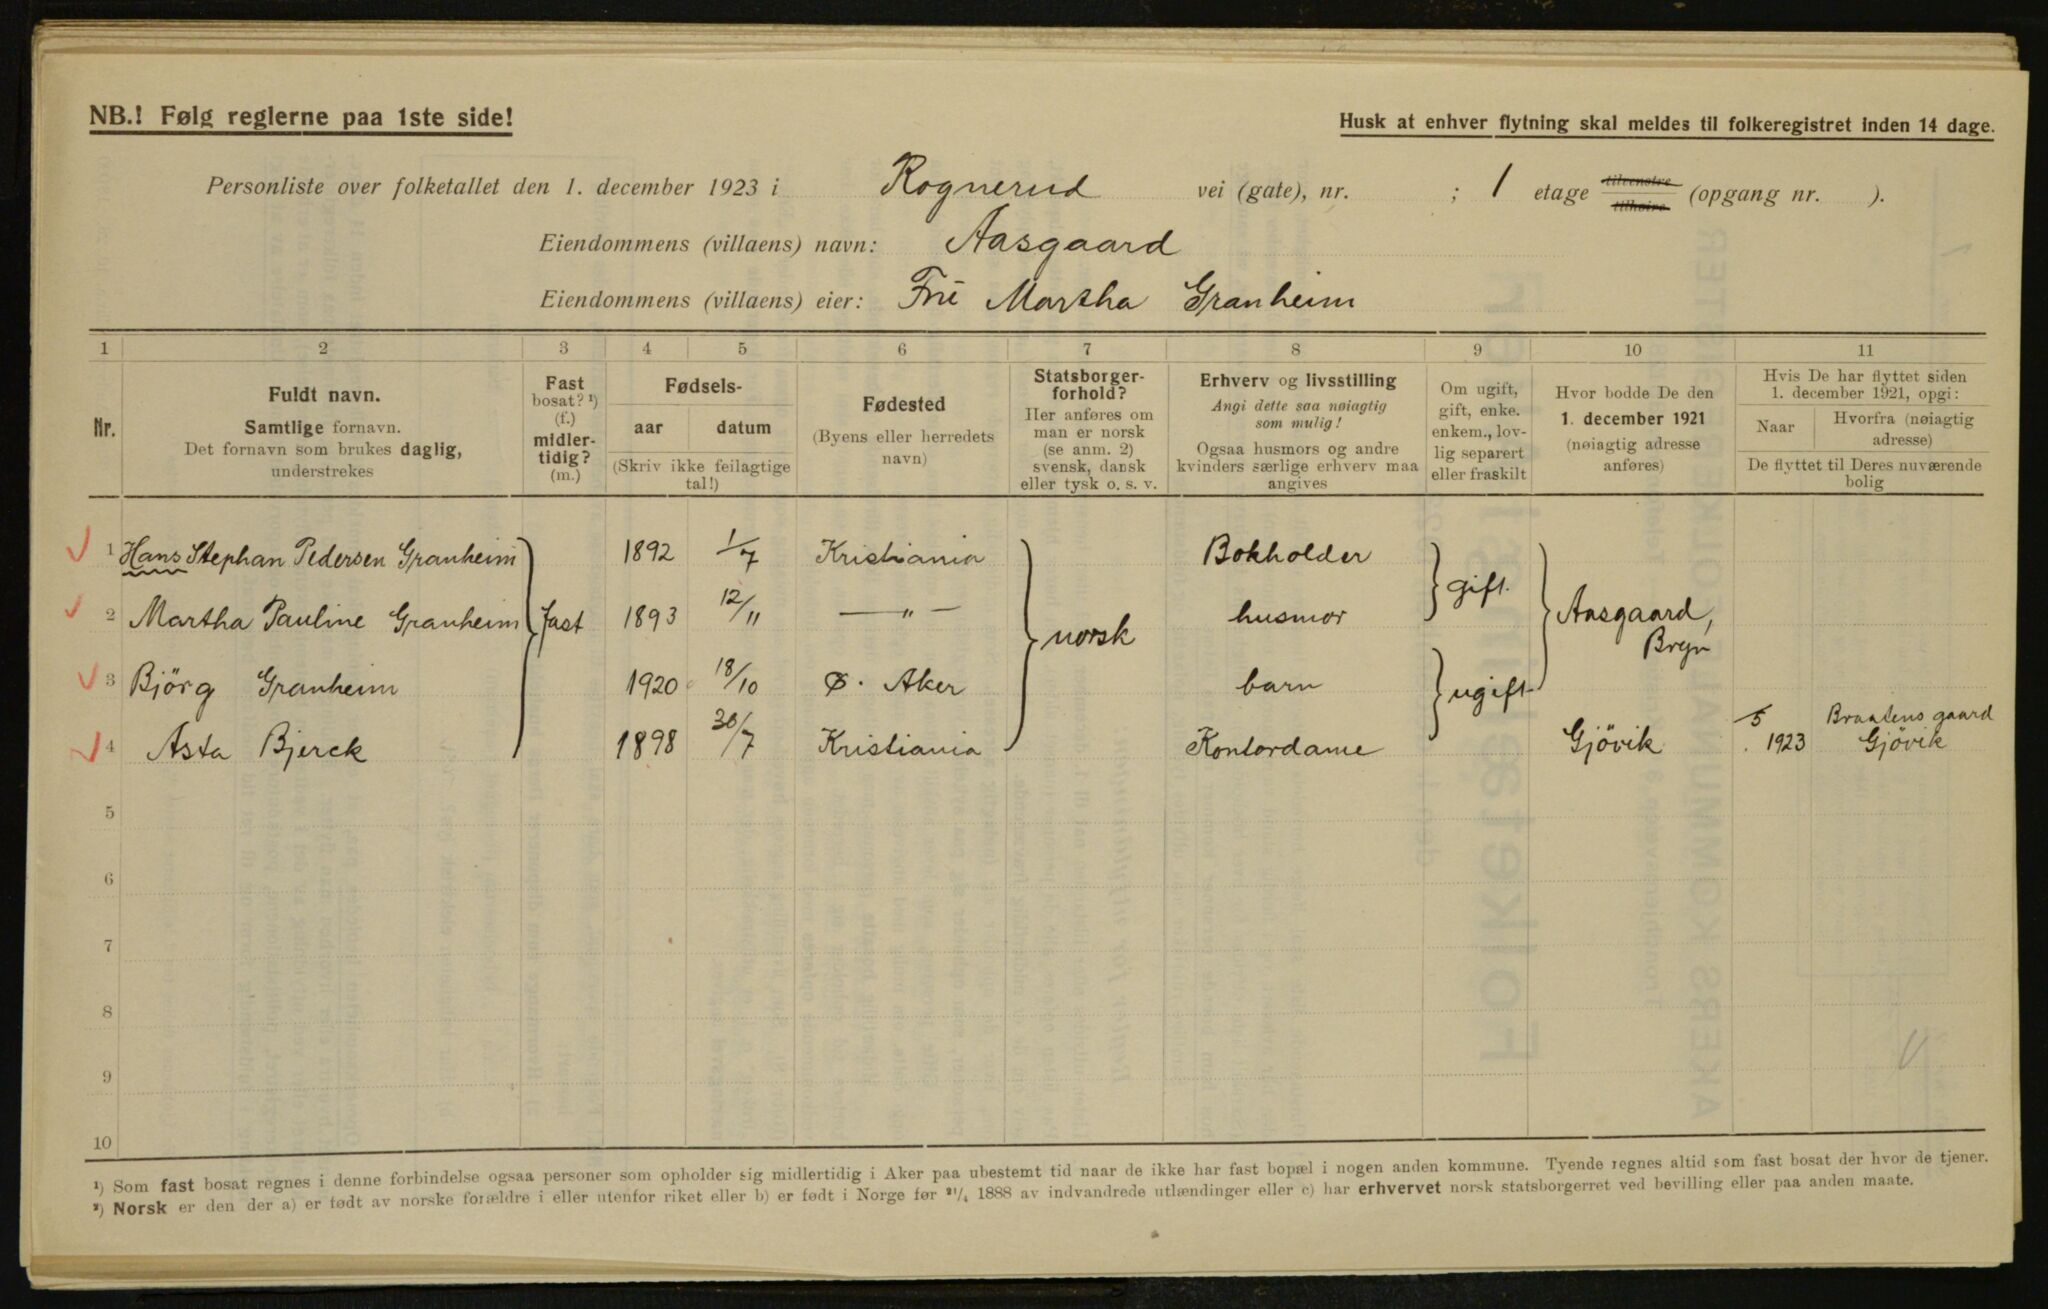 NB.! Følg reglerne paa 1ste side!
Husk at enhver flytning skal meldes til folkeregistret inden 14 dage.
Personliste over folketallet den 1. december 1923 i Rognerud vei (gate), nr. ; 1 etage tilvenstre tilhøire (opgang nr. ).
Eiendommens (villaens) navn: Aasgaard
Eiendommens (villaens) eier: Fru Martha Granheim
1 2 3 4 5 6 7 8 9 10 11
Nr.
Fuldt navn.
Samtlige fornavn.
Det fornavn som brukes daglig,
understrekes
Fast
bosat? ¹)
(f.)
midler-
tidig?
(m.)
Fødsels-
aar datum
(Skriv ikke feilagtige
tal!)
Fødested
(Byens eller herredets
navn)
Statsborger-
forhold?
Her anføres om
man er norsk
(se anm. 2)
svensk, dansk
eller tysk o. s. v.
Erhverv og livsstilling
Angi dette saa nøiagtig
som mulig!
Ogsaa husmors og andre
kvinders særlige erhverv maa
angives
Om ugift,
gift, enke.
enkem., lov-
lig separert
eller fraskilt
Hvor bodde De den
1. december 1921
(nøiagtig adresse
anføres)
Hvis De har flyttet siden
1. december 1921, opgi:
Naar
Hvorfra (nøiagtig
adresse)
De flyttet til Deres nuværende
bolig
1 Hans Stephan Pedersen Granheim 1892 1/7 Kristiania Bokholder
gift.
2 Martha Pauline Granheim fast 1893 12/11 — " — norsk husmor Aasgaard,
Bryn
3 Björg Granheim 1920 18/10 Ø. Aker barn ugift
4 Asta Bjerck 1898 30/7 Kristiania Kontordame Gjövik 5 1923 Braatens gaard
Gjövik
5
6
7
8
9
10
¹) Som fast bosat regnes i denne forbindelse ogsaa personer som opholder sig midlertidig i Aker paa ubestemt tid naar de ikke har fast bopæl i nogen anden kommune. Tyende regnes altid som fast bosat der hvor de tjener.
²) Norsk er den der a) er født av norske forældre i eller utenfor riket eller b) er født i Norge før ²¹/₄ 1888 av indvandrede utlændinger eller c) har erhvervet norsk statsborgerret ved bevilling eller paa anden maate.